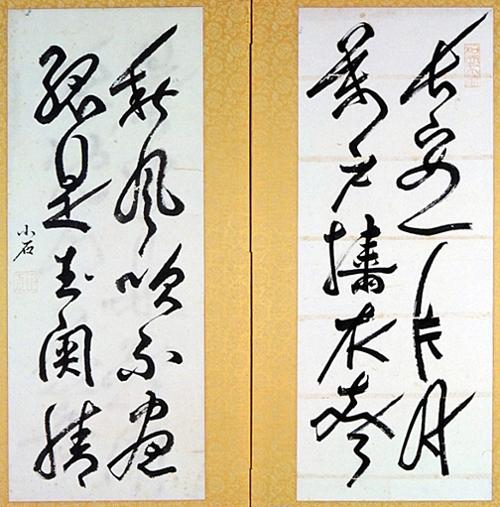 長安一片月
萬戶擣衣聲
秋風吹不盡
總是玉關情
小石